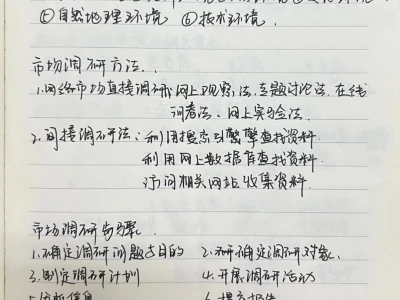 ⑤自然地理环境 ⑥技术环境.
市场调研方法.
1.网络市场直接调研:网上观察法.专题讨论法.在线
问卷法、网上实验法.
2.间接调研法:利用搜索引擎查找资料.
利用网上数据库查找资料.
访问相关网站收集资料.
市场调研步骤.
1.确定调研问题与目的 2.确定调研对象.
3.制定调研计划 4.开展调研活动
5.分析信息 6.提交报告